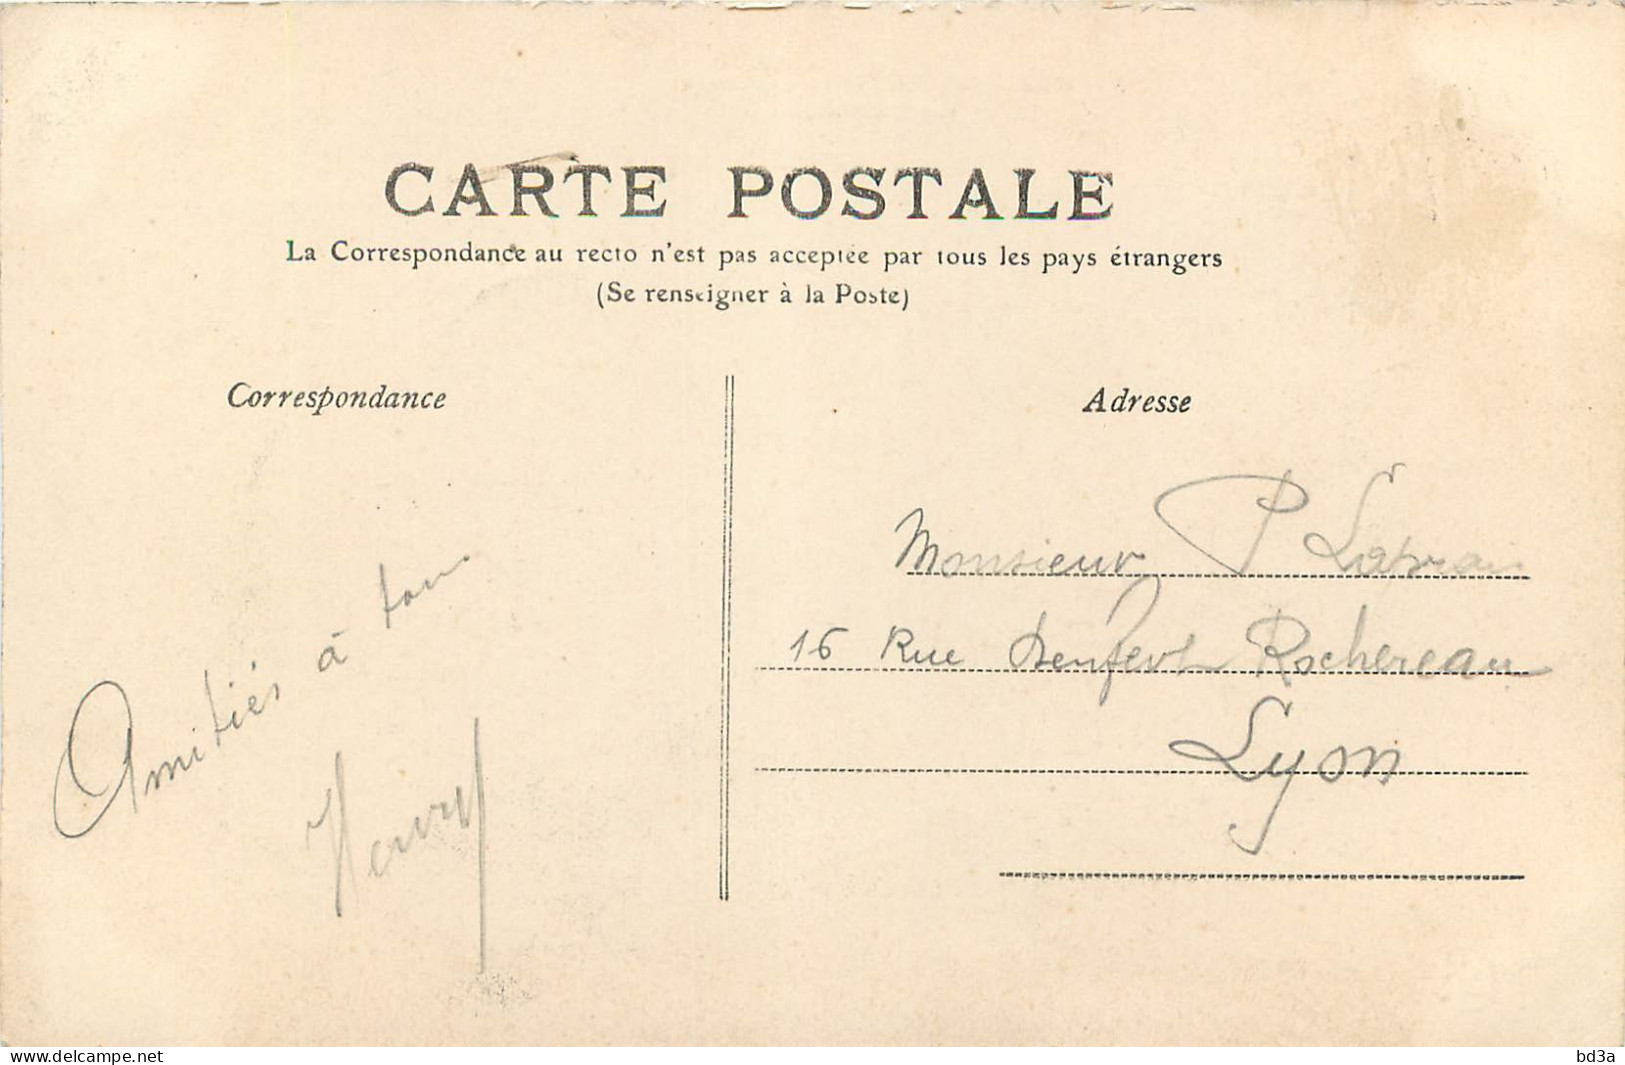 CARTE POSTALE
La Correspondance au recto n'est pas acceptée par tous les pays étrangers
(Se renseigner à la Poste)
Correspondance
Amitiés à tous
Henry
Adresse
Monsieur P
16 Rue Denfert Rochereau
Lyon
www.delcampe.net
bd3a